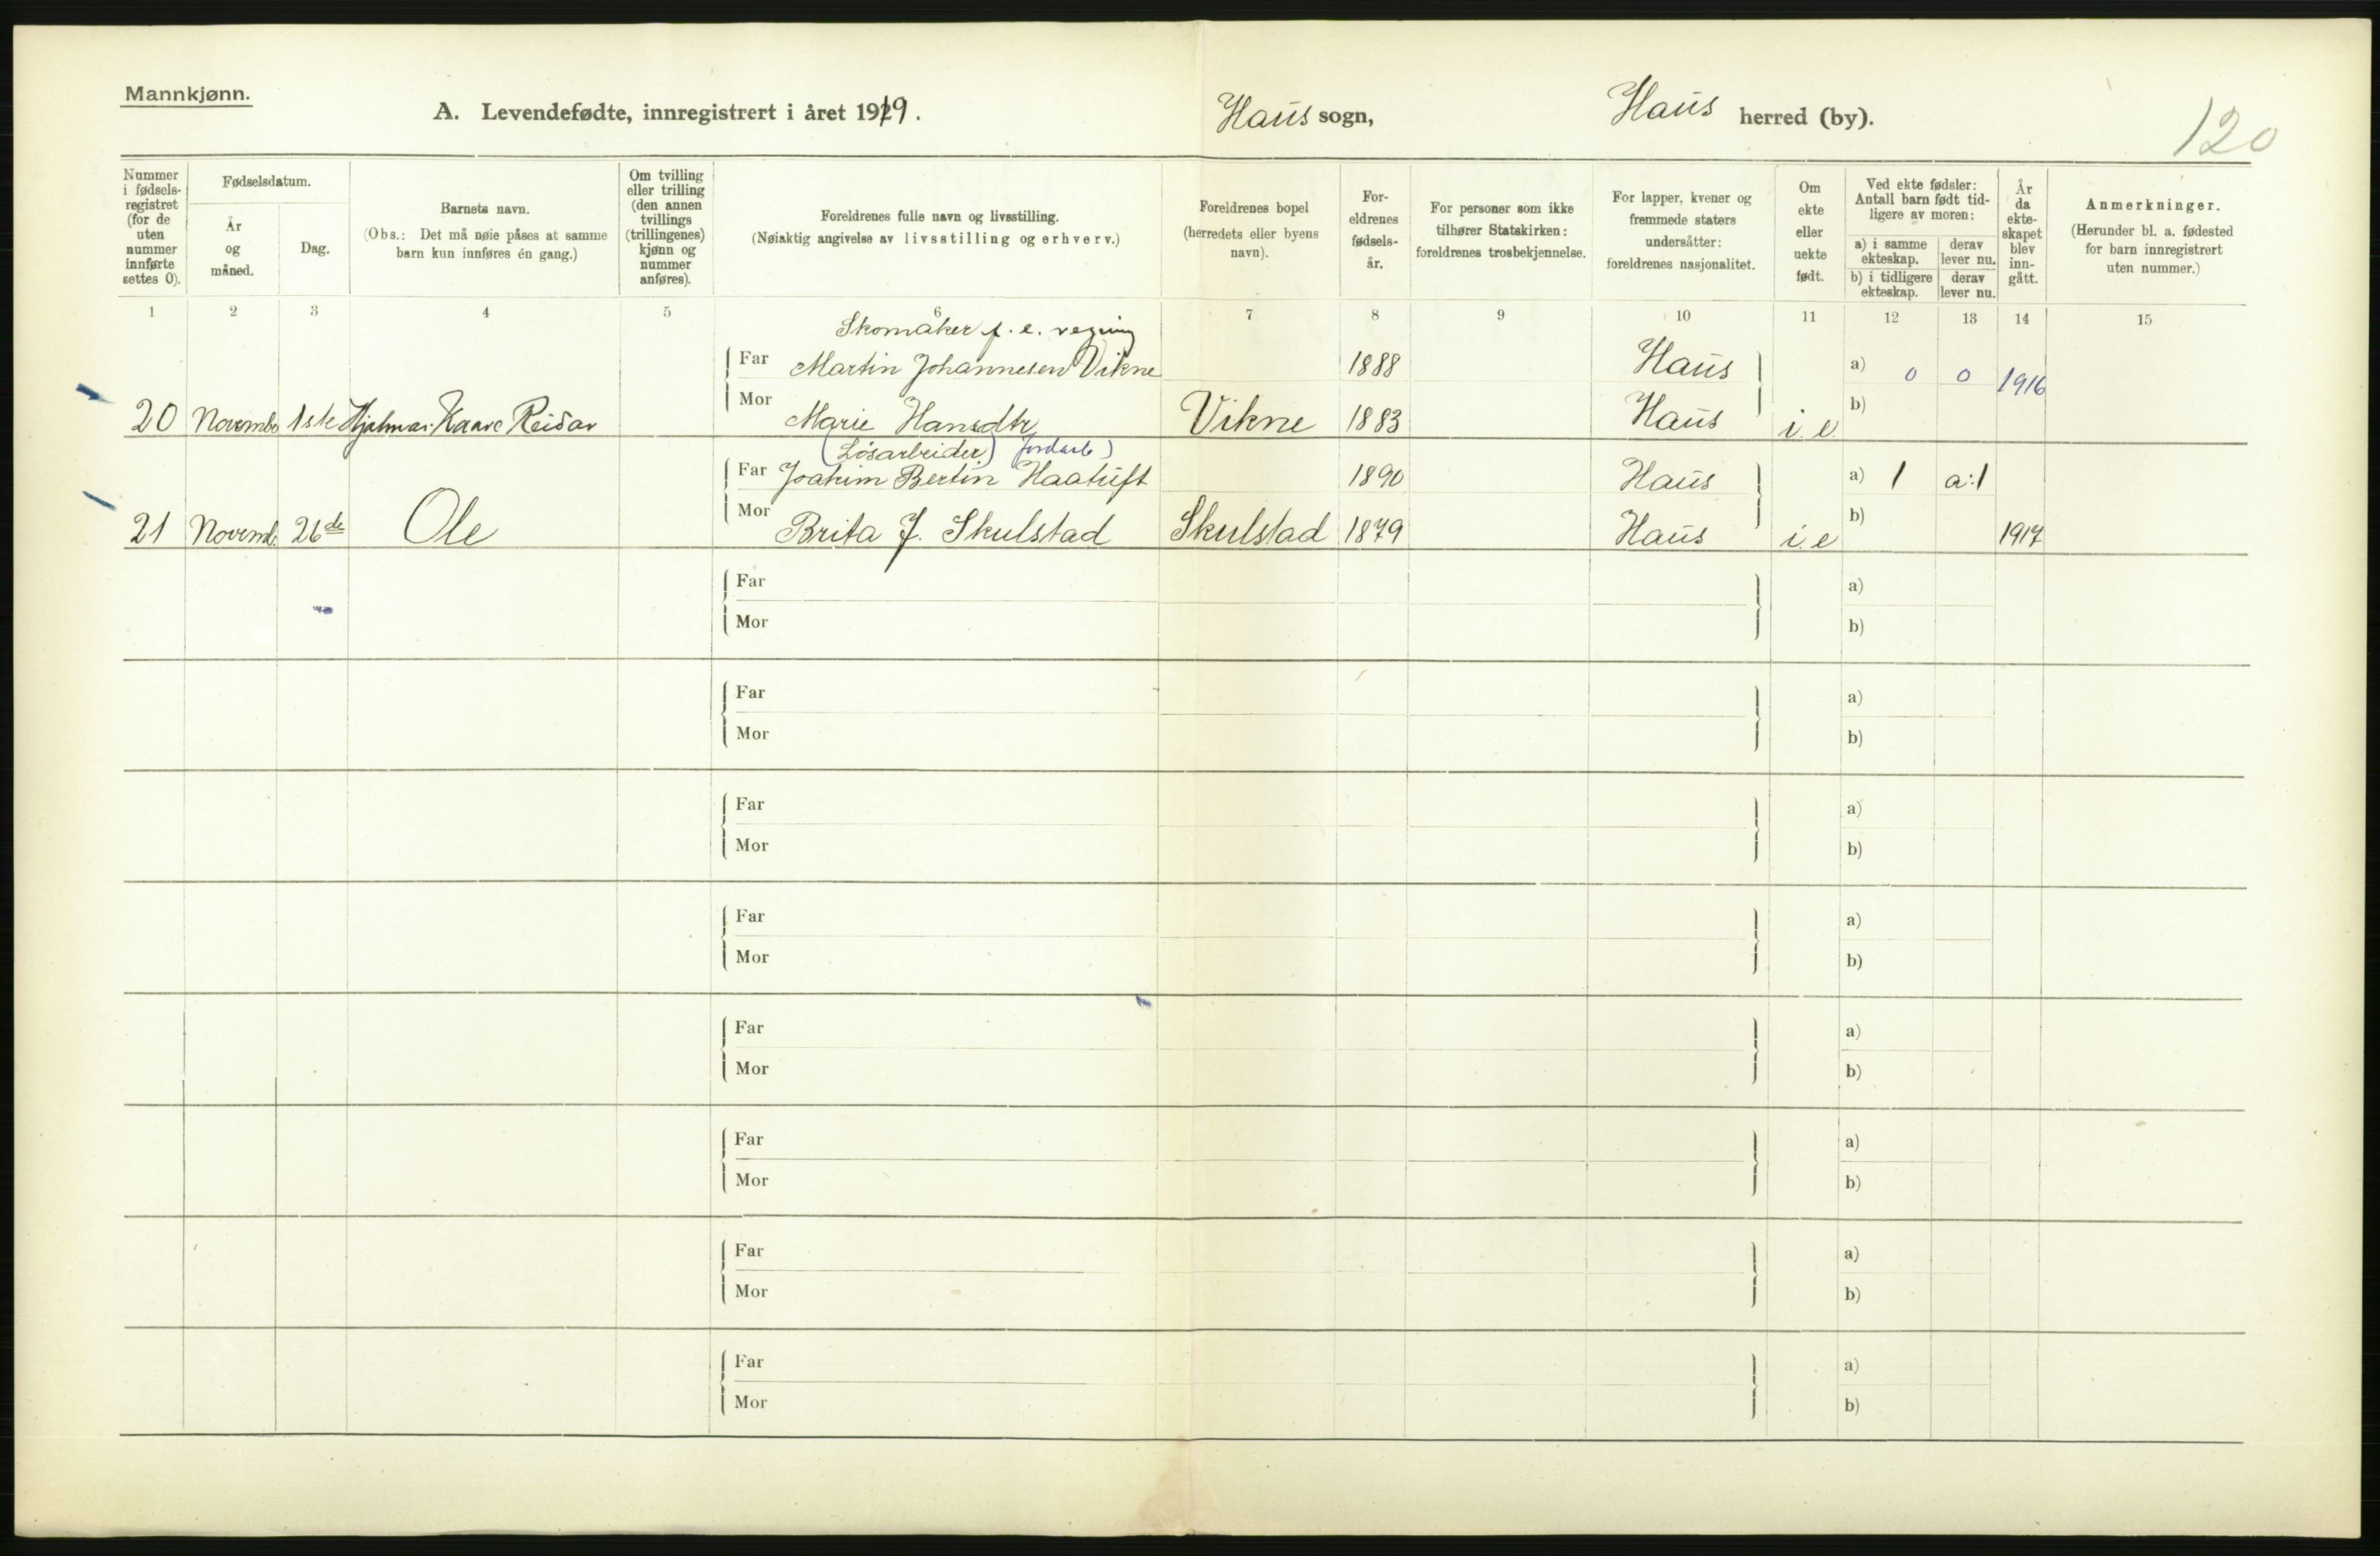 Mannkjønn.
A. Levendefødte, innregistrert i året 1919.
Haus sogn,
Haus herred (by).
120
Nummer i fødsels-registret (for de uten nummer innførte settes 0).
Fødselsdatum.
År og måned.
Dag.
Barnets navn.
(Obs.: Det må nøie påses at samme barn kun innføres én gang.)
Om tvilling eller trilling (den annen tvillings (trillingenes) kjønn og nummer anføres).
Foreldrenes fulle navn og livsstilling.
(Nøiaktig angivelse av livsstilling og erhverv.)
Foreldrenes bopel (herredets eller byens navn).
For-eldrenes fødsels-år.
For personer som ikke tilhører Statskirken: foreldrenes trosbekjennelse.
For lapper, kvener og fremmede staters undersåtter: foreldrenes nasjonalitet.
Om ekte eller uekte født.
Ved ekte fødsler: Antall barn født tid-ligere av moren:
a) i samme ekteskap.
derav lever nu.
b) i tidligere ekteskap.
derav lever nu.
År da ekte-skapet blev inn-gått.
Anmerkninger.
(Herunder bl. a. fødested for barn innregistrert uten nummer.)
1 2 3 4 5 6 7 8 9 10 11 12 13 14 15
Skomaker f. e. regning
Far Martin Johannesen Vikne 1888 Haus a) 0 0 1916
20 Novembr 1ste Hjalmar Kaare Reidar Mor Marie Hansdtr Vikne 1883 Haus i. e. b)
(Løsarbeider) Jordarb)
Far Joakim Bertin Haatuft 1890 Haus a) 1 a:1
21 Novemb. 26de Ole Mor Brita J. Skulstad Skulstad 1879 Haus i. e b) 1917
Far a)
Mor b)
Far a)
Mor b)
Far a)
Mor b)
Far a)
Mor b)
Far a)
Mor b)
Far a)
Mor b)
Far a)
Mor b)
Far a)
Mor b)